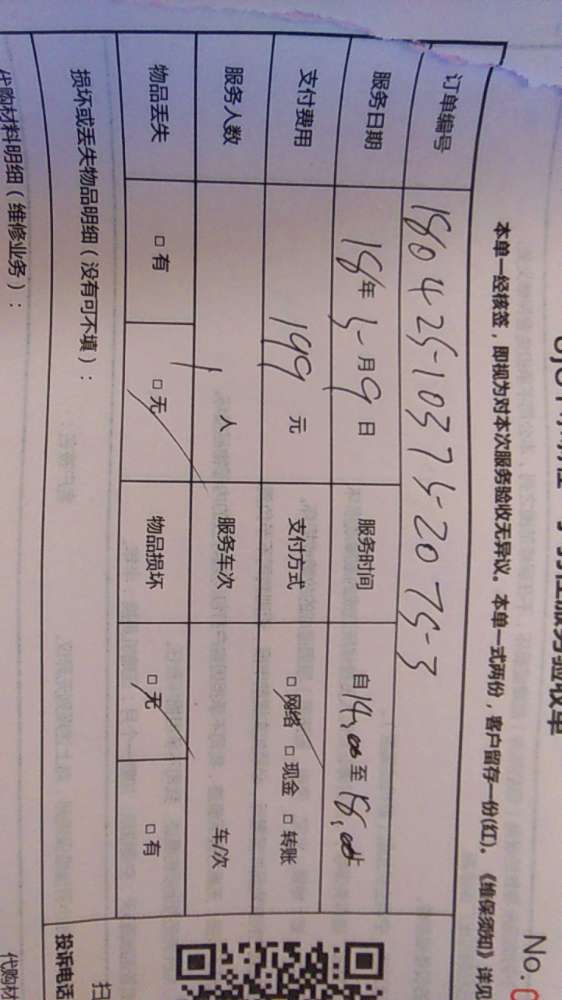 服务验收单
No.
本单一经核签，即视为对本次服务验收无异议。本单一式两份，客户留存一份(红)。《维保须知》详见
订单编号 180425-10375-2075-3
服务日期 18年5月9日 服务时间 自14:00至18:00
支付费用 199元 支付方式 □网络 □现金 □转账
服务人数 1人 服务车次 车/次
物品丢失 □有 □无 物品损坏 □无 □有
损坏或丢失物品明细（没有可不填）：
投诉电话
代购材料明细（维修业务）：
扫
代购材